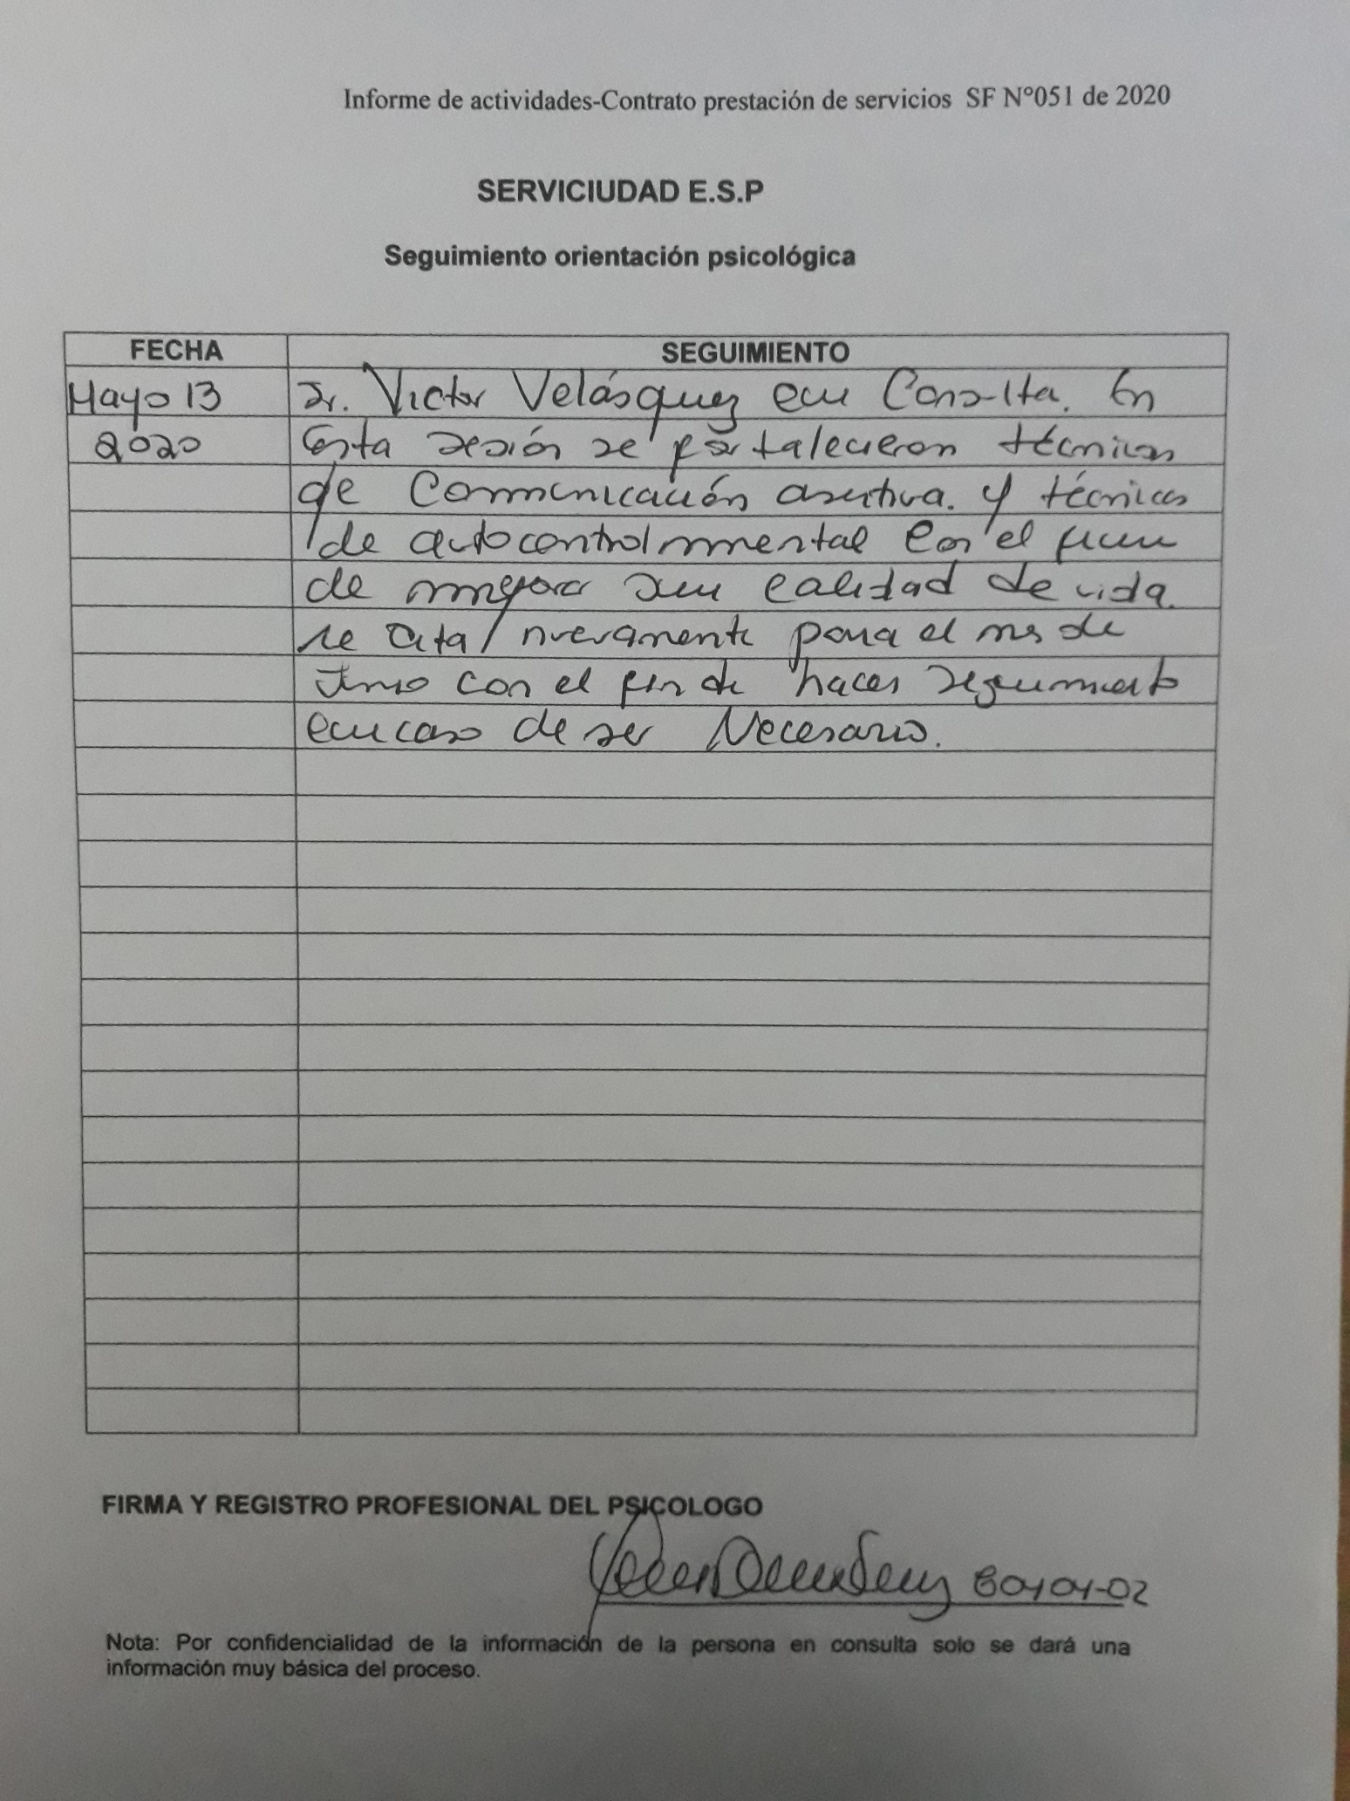 Informe de actividades-Contrato prestación de servicios SF N°051 de 2020
SERVICIUDAD E.S.P
Seguimiento orientación psicológica
FECHA SEGUIMIENTO
Mayo 13 Sr. Victor Velásquez en Consulta. En
2020 Esta sesión se fortalecieron técnicas
de Comunicación asertiva. y técnicas
de autocontrol mental con el fin
de mejorar su calidad de vida.
se cita nuevamente para el mes de
Junio con el fin de hacer seguimiento
en caso de ser Necesario.
FIRMA Y REGISTRO PROFESIONAL DEL PSICOLOGO
Nota: Por confidencialidad de la información de la persona en consulta solo se dará una
información muy básica del proceso.